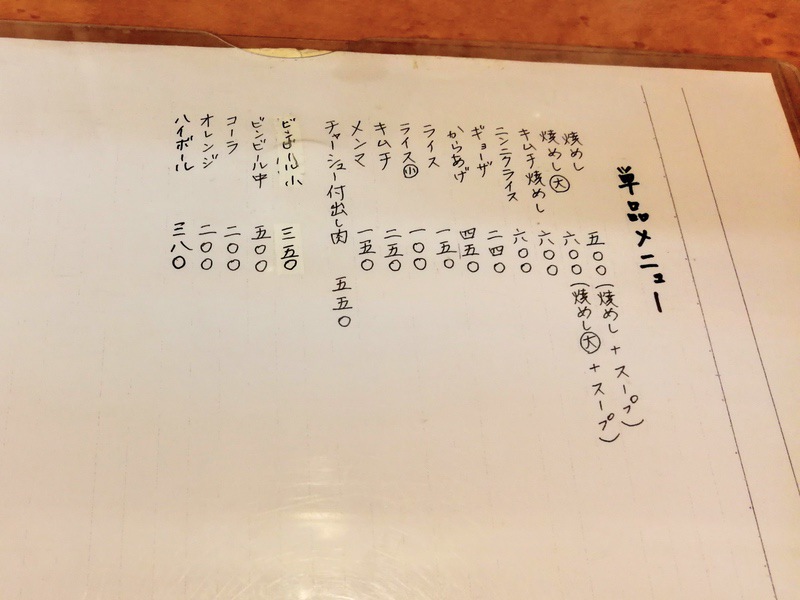 単品メニュー
焼めし 五〇〇(焼めし+スープ)
焼めし㊅ 六〇〇(焼めし㊅+スープ)
キムチ焼めし 六〇〇
ニンニクライス 六〇〇
ギョーザ 二四〇
からあげ 四五〇
ライス 一五〇
ライス㊙ 一〇〇
キムチ 二五〇
メンマ 一五〇
チャーシュー付出し肉 五五〇
ビンビール小 三五〇
ビンビール中 五〇〇
コーラ 二〇〇
オレンジ 二〇〇
ハイボール 三八〇